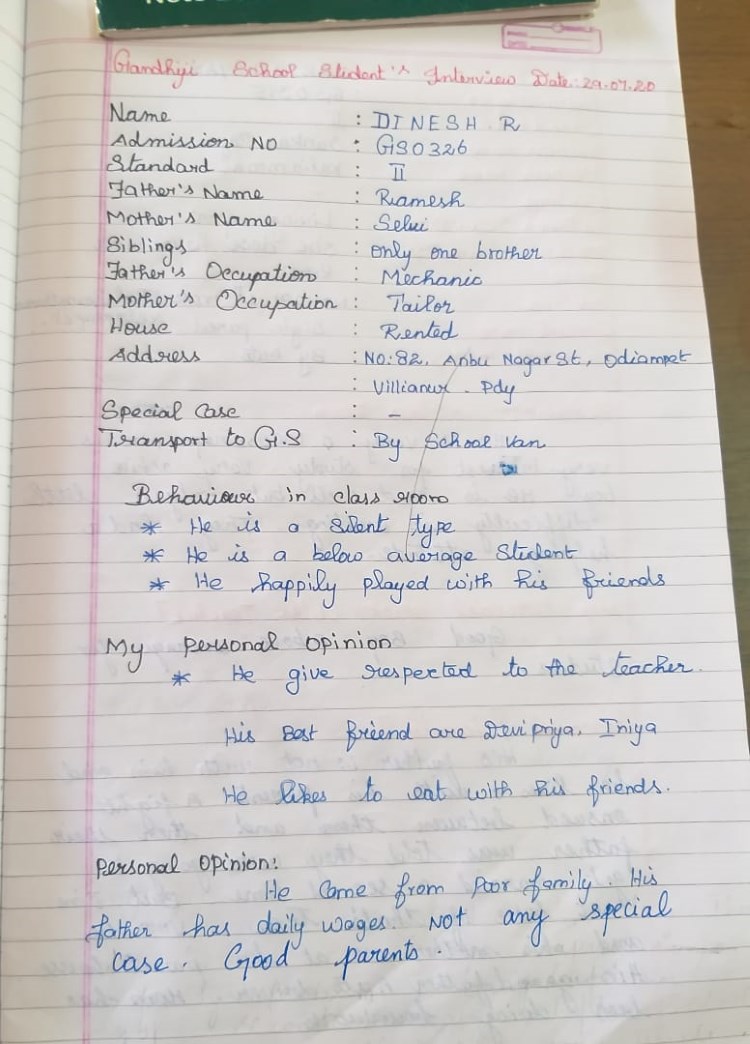 Gandhiji School Student's Interview Date: 29.07.20
Name : DINESH R
Admission NO : GS0326
Standard : II
Father's Name : Ramesh
Mother's Name : Selvi
Siblings : only one brother
Father's Occupation : Mechanic
Mother's Occupation : Tailor
House : Rented
Address : NO:82, Anbu Nagar St, Odiampet
: Villianur. Pdy
Special Case : -
Transport to G.S : By School van
Behaviour in class room
* He is a silent type
* He is a below average Student
* He happily played with his friends
My personal opinion
* He give respected to the teacher.
His Best friend are Devipriya, Iniya
He likes to eat with his friends.
Personal Opinion:
He Came from Poor family. His
father has daily wages. Not any special
case. Good parents.